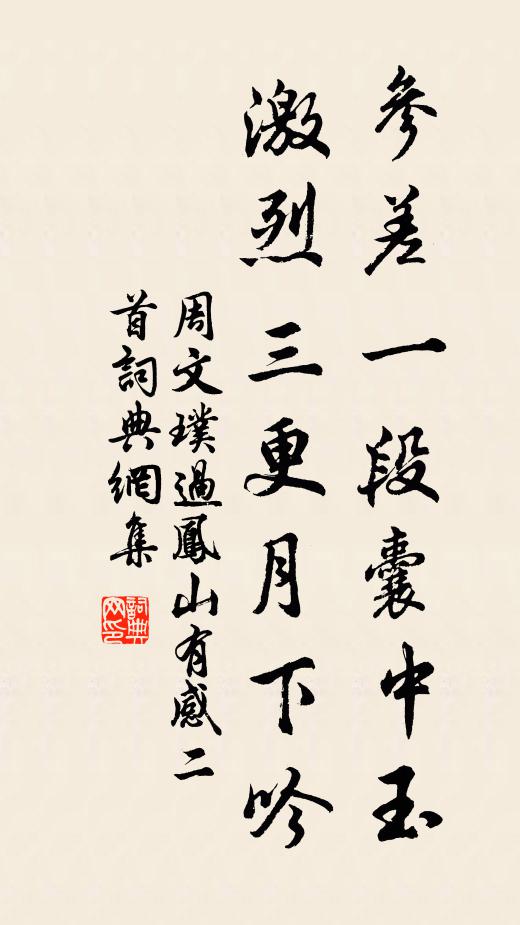 參差一段囊中玉
激烈三更月下吟
周文璞過鳳山有感二
首詞典網集
詞典
网印